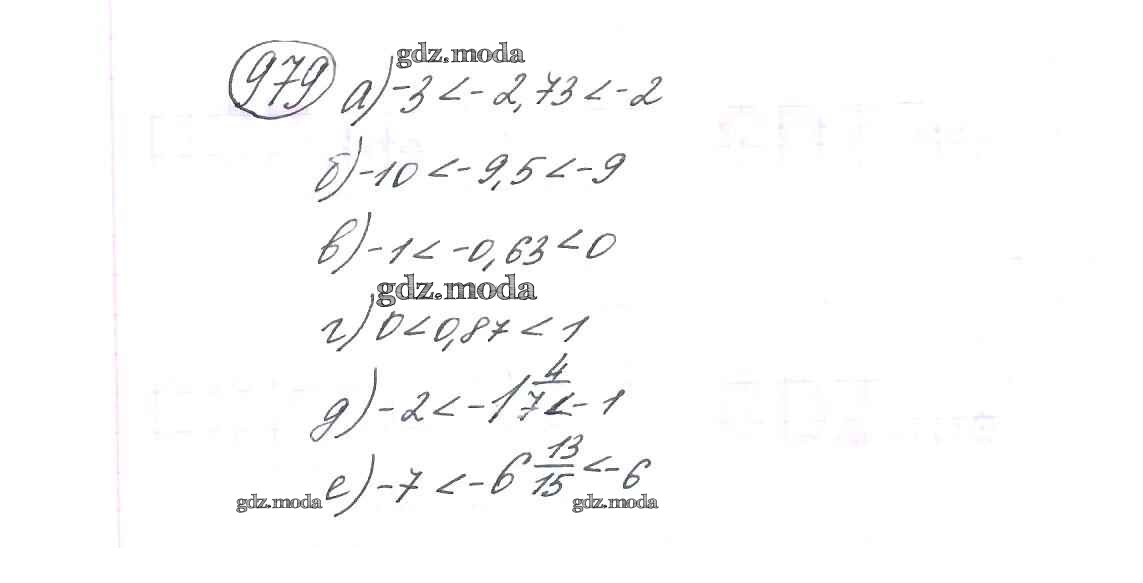 gdz.moda
979 а) -3 < -2,73 < -2
б) -10 < -9,5 < -9
в) -1 < -0,63 < 0
gdz.moda
г) 0 < 0,87 < 1
д) -2 < -1 4/7 < -1
е) -7 < -6 13/15 < -6
gdz.moda gdz.moda